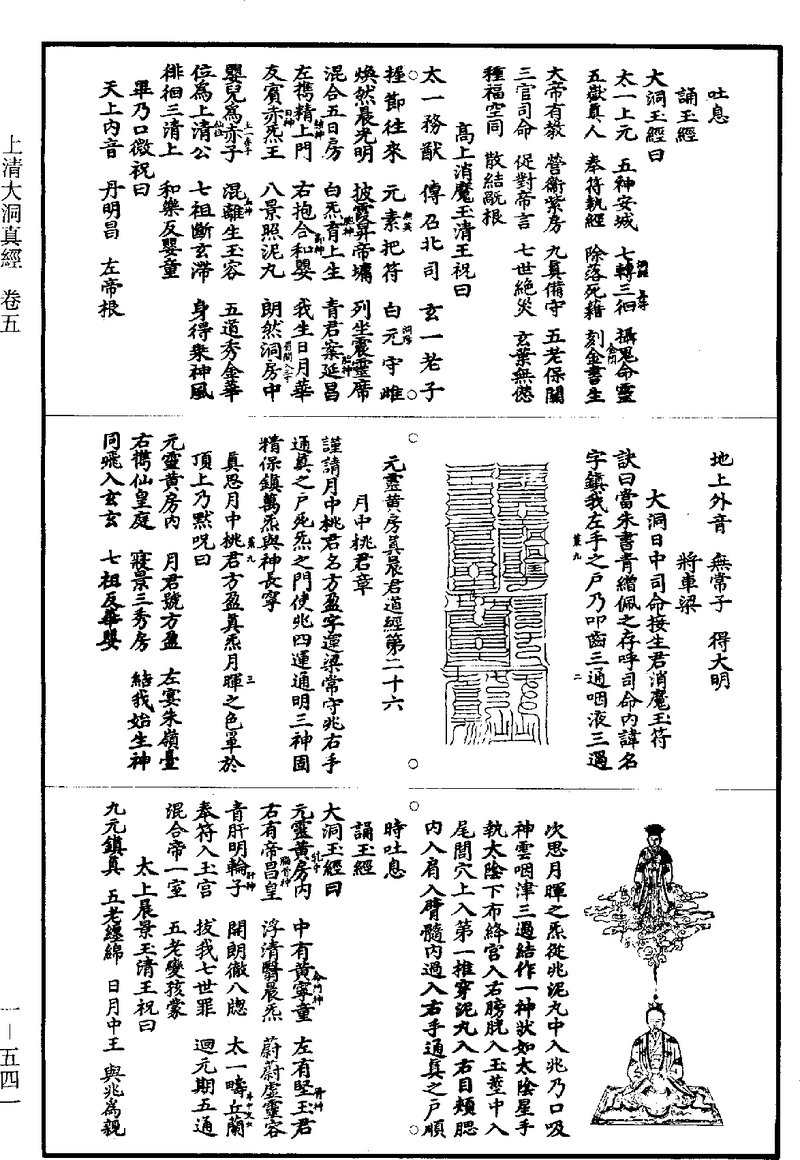 吐息
誦玉經
大洞玉經曰
太一上元　五神安城　七轉三徊　攝鬼命靈
五嶽真人　奉符執經　除落死籍　刻金書生
大帝有教　營衛紫房　九真備守　五老保關
三官司命　促對帝言　七世絕災　玄葉無愆
種福空同　散結胝根
高上消魔玉清王祝曰
太一務猷　傳召北司　玄一老子
握節往來　元素把符　白元守雌
煥然晨光明　披霞昇帝墉　列坐震靈席
混合五日房　白炁育上生　青君案延昌
左攜精上門　右抱合和嬰　我生日月華
友賓赤炁王　八景照泥丸　朗然洞房中
嬰兒為赤子　混離生玉容　五道秀金華
位為上清公　七祖斷玄滯　身得乘神風
徘徊三清上　和樂反嬰童
畢乃口微祝曰
天上內音　丹明昌　左帝根
地上外音　無常子　得大明
將車梁
大洞日中司命接生君消魔玉符
訣曰當朱書青繒佩之存呼司命內諱名
字鎮我左手之戶乃叩齒三通咽液三過
元靈黃房真晨君道經第二十六
月中桃君章
謹請月中桃君名方盈字運梁常守兆右手
通真之戶死炁之門使兆四運通明三神固
精保鎮萬炁與神長寧
真思月中桃君方盈真炁月暉之色罩於
頂上乃默呪曰
元靈黃房內　月君號方盈　左宴朱嶺臺
右攜仙皇庭　寢景三秀房　結我始生神
同飛入玄玄　七祖反華嬰
次思月暉之炁從兆泥丸中入兆乃口吸
神雲咽津三過結作一神狀如太陰星手
執太陰下布絳宮入右膀胱入玉莖中入
尾閭穴上入第一椎穿泥丸入右目頰腮
內入肩入臂髓內過入右手通真之戶順
時吐息
誦玉經
大洞玉經曰
元靈黃房內　中有黃寧童　左有堅玉君
右有帝昌皇　浮清翳晨炁　蔚蔚虛靈容
青肝明輪子　開朗徹八牕　太一疇丘蘭
奉符入玉宮　拔我七世罪　迴元期五通
混合帝一室　五老變孩蒙
太上晨景玉清王祝曰
九元鎮真　五老纏綿　日月中王　與兆為親
上清大洞真經　卷五
一—五四一